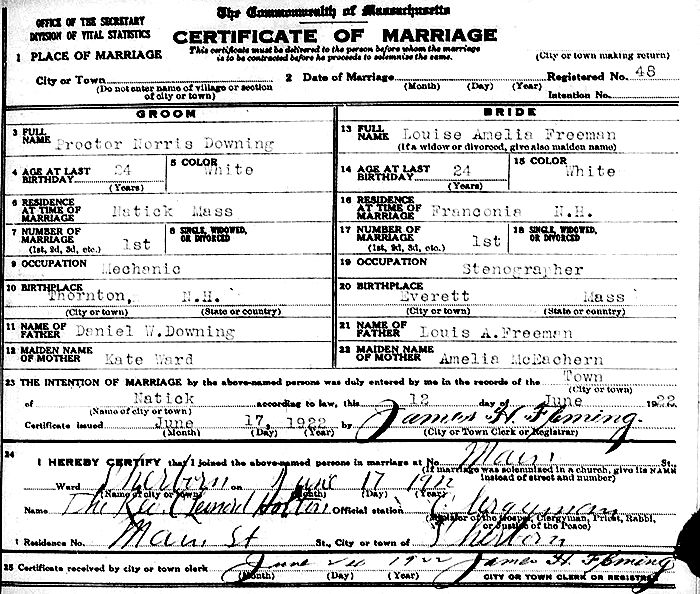 The Commonwealth of Massachusetts
OFFICE OF THE SECRETARY
DIVISION OF VITAL STATISTICS
CERTIFICATE OF MARRIAGE
This certificate must be delivered to the person before whom the marriage
is to be contracted before he proceeds to solemnize the same.
1 PLACE OF MARRIAGE
(City or town making return)
City or Town
(Do not enter name of village or section
of city or town)
2 Date of Marriage
(Month) (Day) (Year)
Registered No. 48
Intention No.
GROOM
BRIDE
3 FULL NAME Proctor Norris Downing
13 FULL NAME Louise Amelia Freeman
(If a widow or divorced, give also maiden name)
4 AGE AT LAST BIRTHDAY 24 (Years)
5 COLOR White
14 AGE AT LAST BIRTHDAY 24 (Years)
15 COLOR White
6 RESIDENCE AT TIME OF MARRIAGE Natick Mass
16 RESIDENCE AT TIME OF MARRIAGE Franconia N.H.
7 NUMBER OF MARRIAGE (1st, 2d, 3d, etc.) 1st
8 SINGLE, WIDOWED, OR DIVORCED
17 NUMBER OF MARRIAGE (1st, 2d, 3d, etc.) 1st
18 SINGLE, WIDOWED, OR DIVORCED
9 OCCUPATION Mechanic
19 OCCUPATION Stenographer
10 BIRTHPLACE Thornton, N.H.
(City or town) (State or country)
20 BIRTHPLACE Everett Mass
(City or town) (State or country)
11 NAME OF FATHER Daniel W.Downing
21 NAME OF FATHER Louis A.Freeman
12 MAIDEN NAME OF MOTHER Kate Ward
22 MAIDEN NAME OF MOTHER Amelia McEachern
23 THE INTENTION OF MARRIAGE by the above-named persons was duly entered by me in the records of the Town
(City or town)
of Natick according to law, this 12 day of June 1922
(Name of city or town)
Certificate issued June 17, 1922 by James H. Fleming.
(Month) (Day) (Year) (City or Town Clerk or Registrar)
24
I HEREBY CERTIFY that I joined the above-named persons in marriage at No. Main St.,
(If marriage was solemnized in a church, give its NAME
instead of street and number)
Ward Sherborn on June 17 1922
(Name of city or town) (Month) (Day) (Year)
Name The Rev. Official station Clergyman
(Minister of the Gospel, Clergyman, Priest, Rabbi,
or Justice of the Peace)
Residence No. Main St St., City or town of Sherborn
25 Certificate received by city or town clerk June 1922 James H. Fleming
(Month) (Day) (Year) CITY OR TOWN CLERK OR REGISTRAR